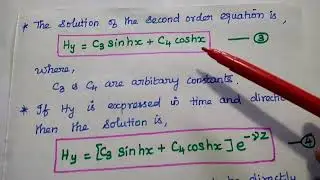 * The solution of the second order equation is,
Hy = C₃ sinhx + C₄ coshx — ③
where,
C₃ & C₄ are arbitrary constants
* If Hy is expressed in time and directi
then the solution is,
Hy = [C₃ sinhx + C₄ coshx] e^-γz — ④
be directly